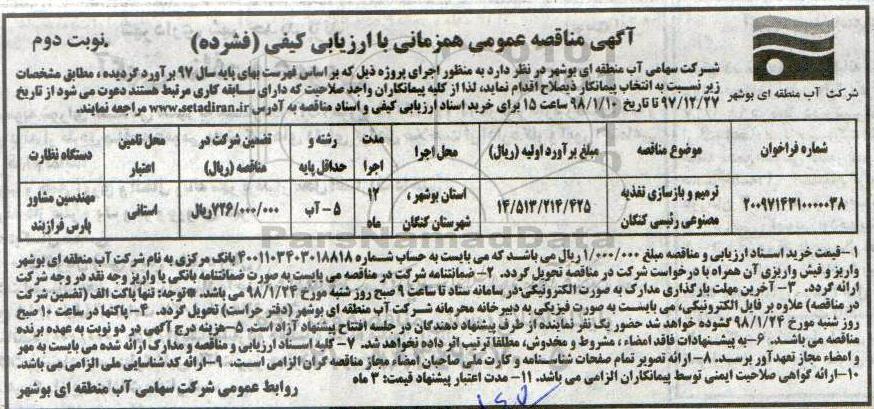 آگهی مناقصه عمومی همزمانی با ارزیابی کیفی (فشرده) .نوبت دوم
شرکت سهامی آب منطقه ای بوشهر در نظر دارد به منظور اجرای پروژه ذیل که بر اساس فهرست بهای پایه سال ۹۷ برآورد گردیده ، مطابق مشخصات
زیر نسبت به انتخاب پیمانکار ذیصلاح اقدام نماید، لذا از کلیه پیمانکاران واجد صلاحیت که دارای سابقه کاری مرتبط هستند دعوت می شود از تاریخ
۹۷/۱۲/۲۷ تا تاریخ ۹۸/۱/۱۰ ساعت ۱۵ برای خرید اسناد ارزیابی کیفی و اسناد مناقصه به آدرس www.setadiran.ir مراجعه نمایند.
شرکت آب منطقه ای بوشهر
شماره فراخوان
موضوع مناقصه
مبلغ برآورد اولیه (ریال)
محل اجرا
مدت اجرا
رشته و حداقل پایه
تضمین شرکت در مناقصه (ریال)
محل تامین اعتبار
دستگاه نظارت
۲۰۰۹۷۱۴۳۱۰۰۰۰۰۳۸
ترمیم و بازسازی تغذیه مصنوعی رئیسی کنگان
۱۴/۵۱۳/۲۱۴/۴۲۵
استان بوشهر ، شهرستان کنگان
۱۲ ماه
۵- آب
۷۲۶/۰۰۰/۰۰۰ ریال
استانی
مهندسین مشاور پارس فرازبند
ParsNamadData
۱-قیمت خرید اسناد ارزیابی و مناقصه مبلغ ۱/۰۰۰/۰۰۰ ریال می باشد که می بایست به حساب شماره ۴۰۰۱۱۰۳۴۰۳۰۱۸۸۱۸ بانک مرکزی به نام شرکت آب منطقه ای بوشهر
واریز و فیش واریزی آن همراه با درخواست شرکت در مناقصه تحویل گردد. ۲- ضمانتنامه شرکت در مناقصه می بایست به صورت ضمانتنامه بانکی یا واریز وجه نقد در وجه شرکت
ارائه گردد. ۳- آخرین مهلت بارگذاری مدارک به صورت الکترونیکی در سامانه ستاد تا ساعت ۹ صبح روز شنبه مورخ ۹۸/۱/۲۴ می باشد. *توجه: تنها پاکت الف (تضمین شرکت
در مناقصه) علاوه بر فایل الکترونیکی، می بایست به صورت فیزیکی به دبیرخانه محرمانه شرکت آب منطقه ای بوشهر (دفتر حراست) تحویل گردد. ۴-پاکتها در ساعت ۱۰ صبح
روز شنبه مورخ ۹۸/۱/۲۴ گشوده خواهد شد حضور یک نفر نماینده از طرف پیشنهاد دهندگان در جلسه افتتاح پیشنهاد آزاد است. ۵-هزینه درج آگهی در دو نوبت به عهده برنده
مناقصه می باشد. ۶-به پیشنهادات فاقد امضاء ، مشروط و مخدوش، مطلقا ترتیب اثر داده نخواهد شد. ۷- کلیه اسناد ارزیابی و مناقصه و مدارک ارائه شده می بایست به مهر
و امضاء مجاز تعهدآور برسد. ۸-ارائه تصویر تمام صفحات شناسنامه و کارت ملی صاحبان امضاء مجاز مناقصه گران الزامی است. ۹-ارائه کد شناسایی ملی الزامی می باشد.
۱۰-ارائه گواهی صلاحیت ایمنی توسط پیمانکاران الزامی می باشد. ۱۱- مدت اعتبار پیشنهاد قیمت: ۳ ماه
روابط عمومی شرکت سهامی آب منطقه ای بوشهر